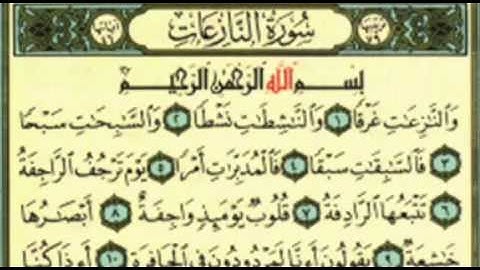 سُورَةُ النَّازِعَاتِ
بِسْمِ اللَّهِ الرَّحْمَٰنِ الرَّحِيمِ
وَالنَّٰزِعَٰتِ غَرْقًا ١ وَالنَّٰشِطَٰتِ نَشْطًا ٢ وَالسَّٰبِحَٰتِ سَبْحًا
٣ فَالسَّٰبِقَٰتِ سَبْقًا ٤ فَالْمُدَبِّرَٰتِ أَمْرًا ٥ يَوْمَ تَرْجُفُ الرَّاجِفَةُ
٦ تَتْبَعُهَا الرَّادِفَةُ ٧ قُلُوبٌ يَوْمَئِذٍ وَاجِفَةٌ ٨ أَبْصَٰرُهَا
خَٰشِعَةٌ ٩ يَقُولُونَ أَءِنَّا لَمَرْدُودُونَ فِي الْحَافِرَةِ ١٠ أَءِذَا كُنَّا